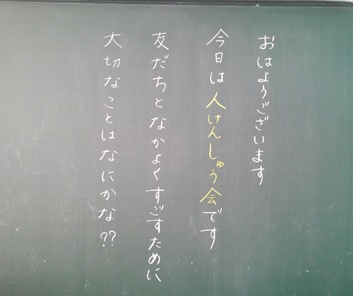 おはようございます
今日は人けんしゅう会です
友だちとなかよくすごすために
大切なことはなにかな??